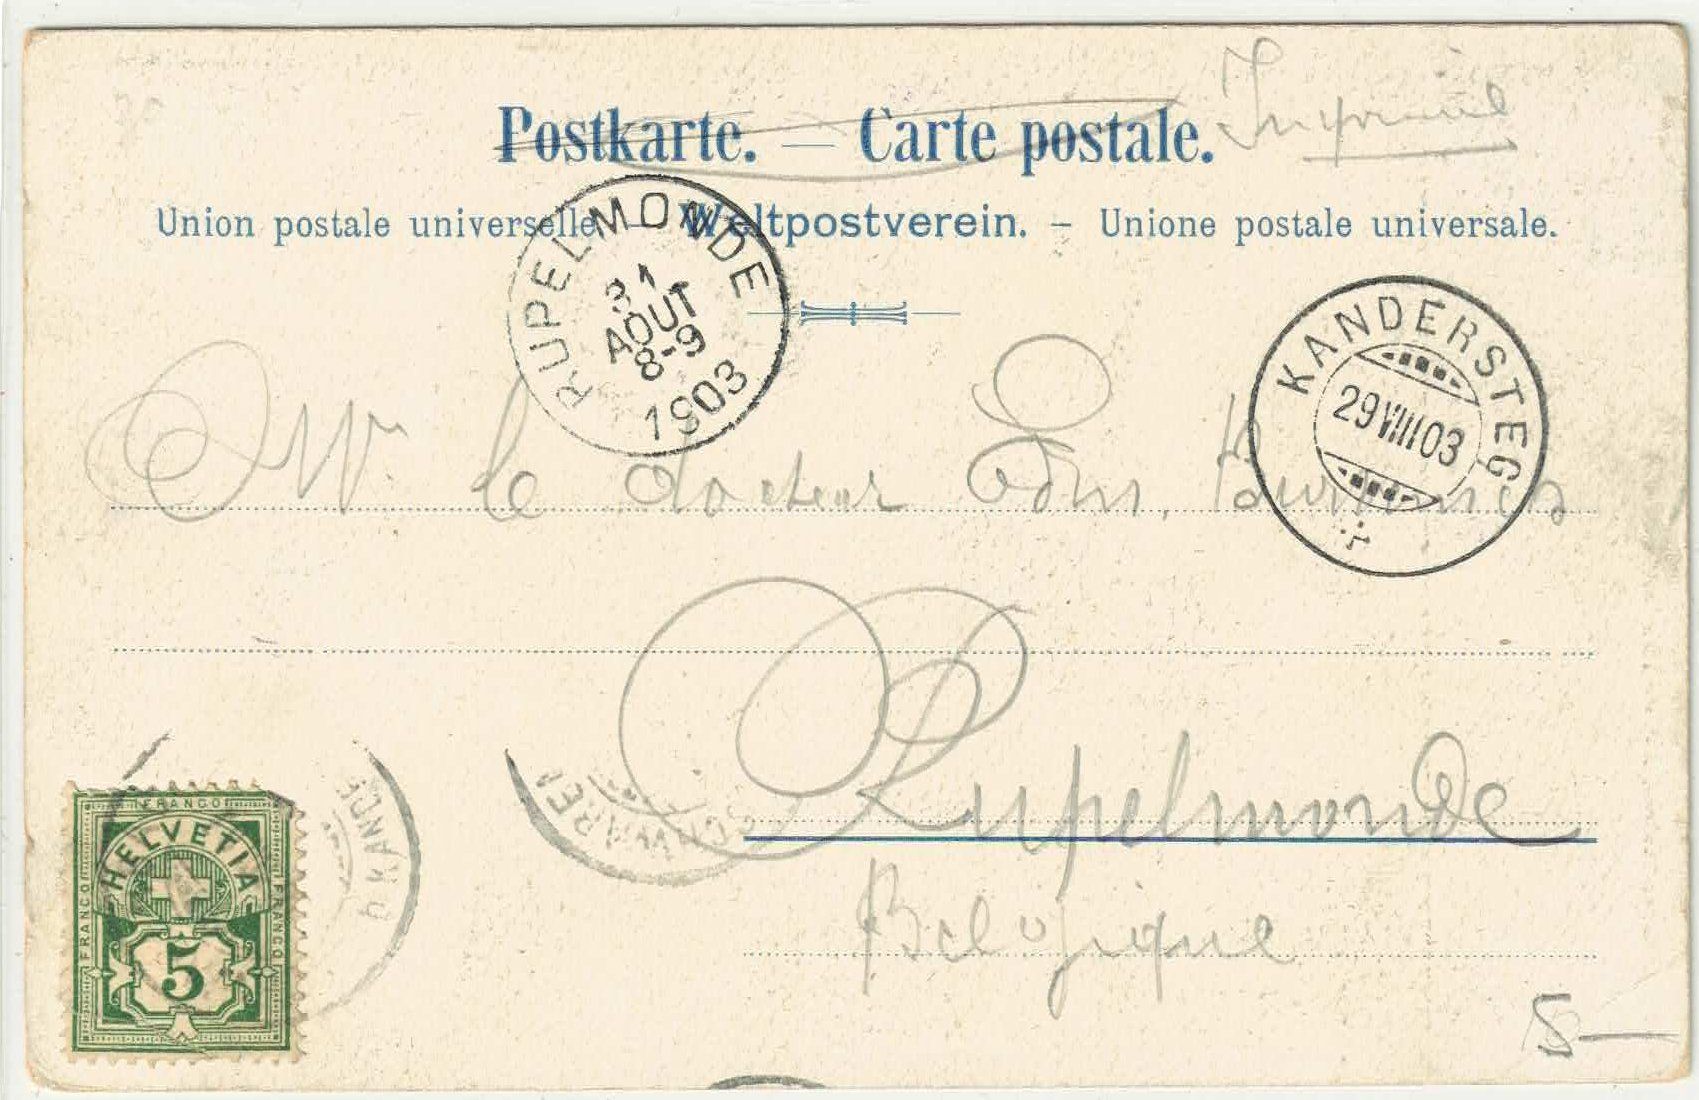 Imprimé
Postkarte. — Carte postale.
Union postale universelle – Weltpostverein. – Unione postale universale.
RUPELMONDE
31
AOUT
8-9
1903
KANDERSTEG
29 VIII 03
Mr. le docteur Edm.
Rupelmonde
Belgique
FRANCO
HELVETIA
FRANCO
FRANCO
5
KANDE
5—